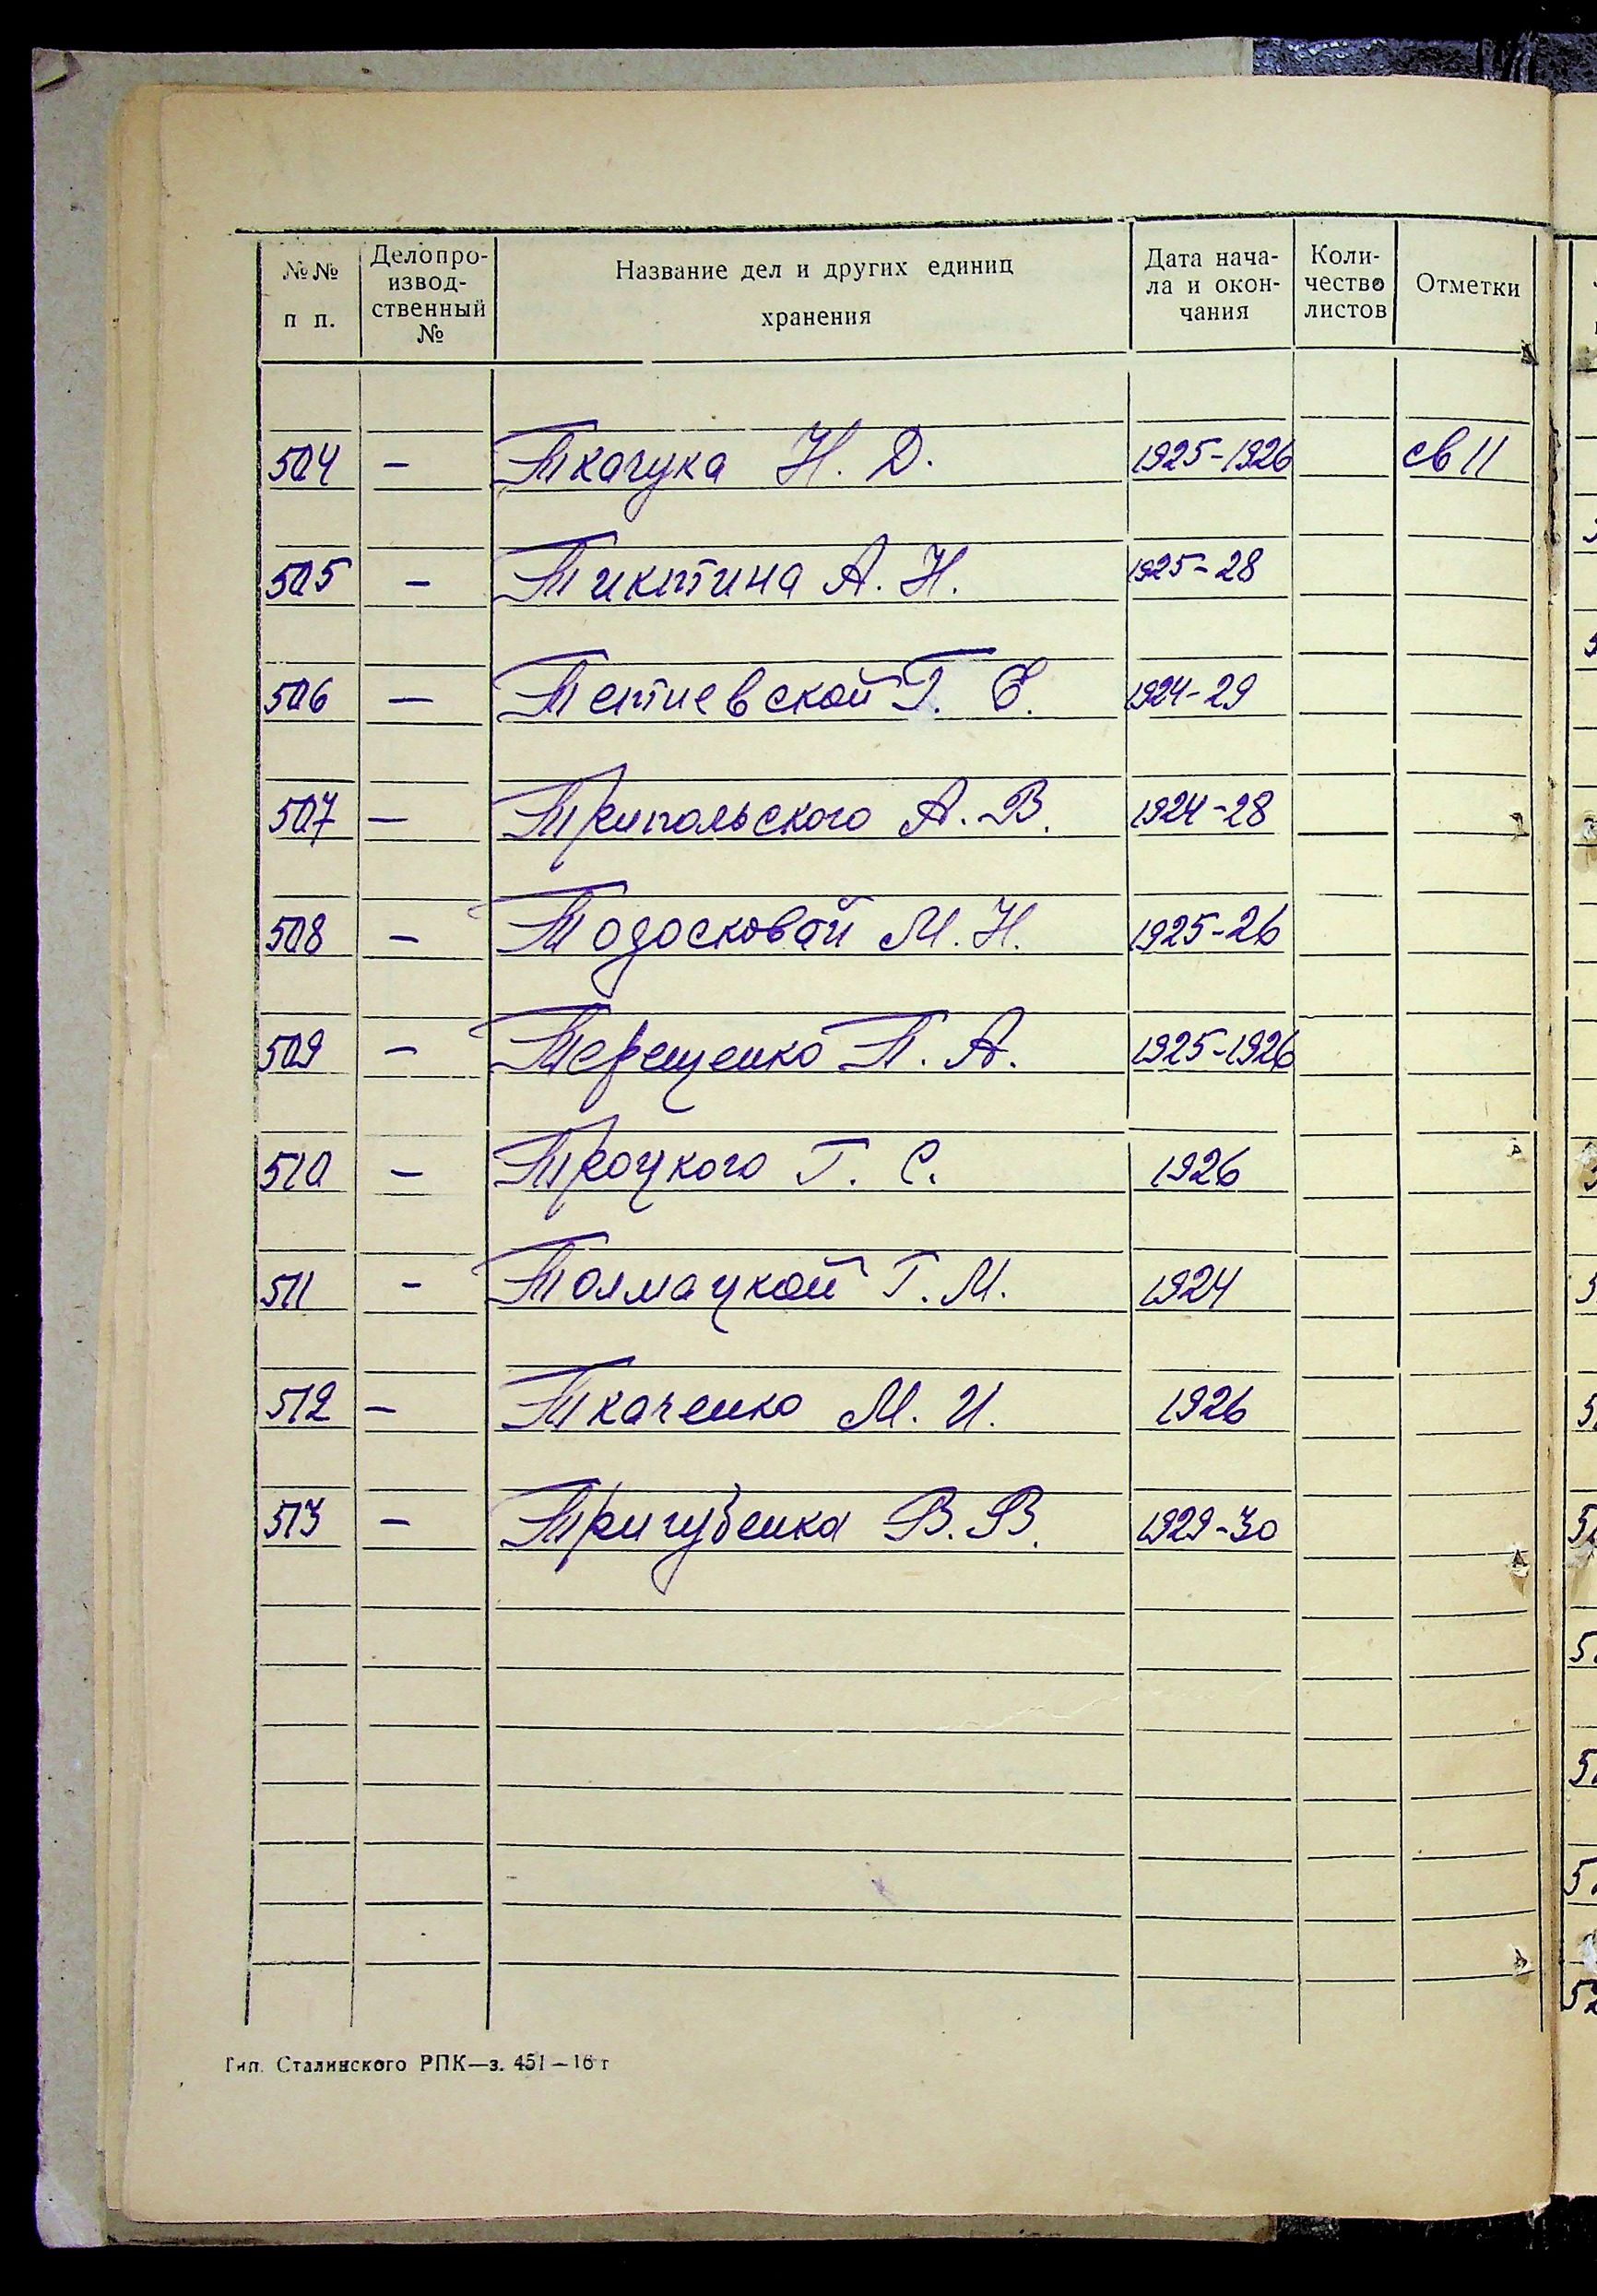 №№ п п. Делопро-извод-ственный № Название дел и других единиц хранения Дата нача-ла и окон-чания Коли-чество листов Отметки
504 — Ткачука Н. Д. 1925-1926 св 11
505 — Тиктина А. Н. 1925-28
506 — Тетиевской Г. Е. 1924-29
507 — Трипольского А. В. 1924-28
508 — Тодосковой М. Н. 1925-26
509 — Терещенко П. А. 1925-1926
510 — Троцкого Г. С. 1926
511 - Толмацкой Г. М. 1924
512 — Ткаченко М. И. 1926
513 — Тригубенка В. В. 1929-30
Тип. Сталинского РПК—з. 451—16 г